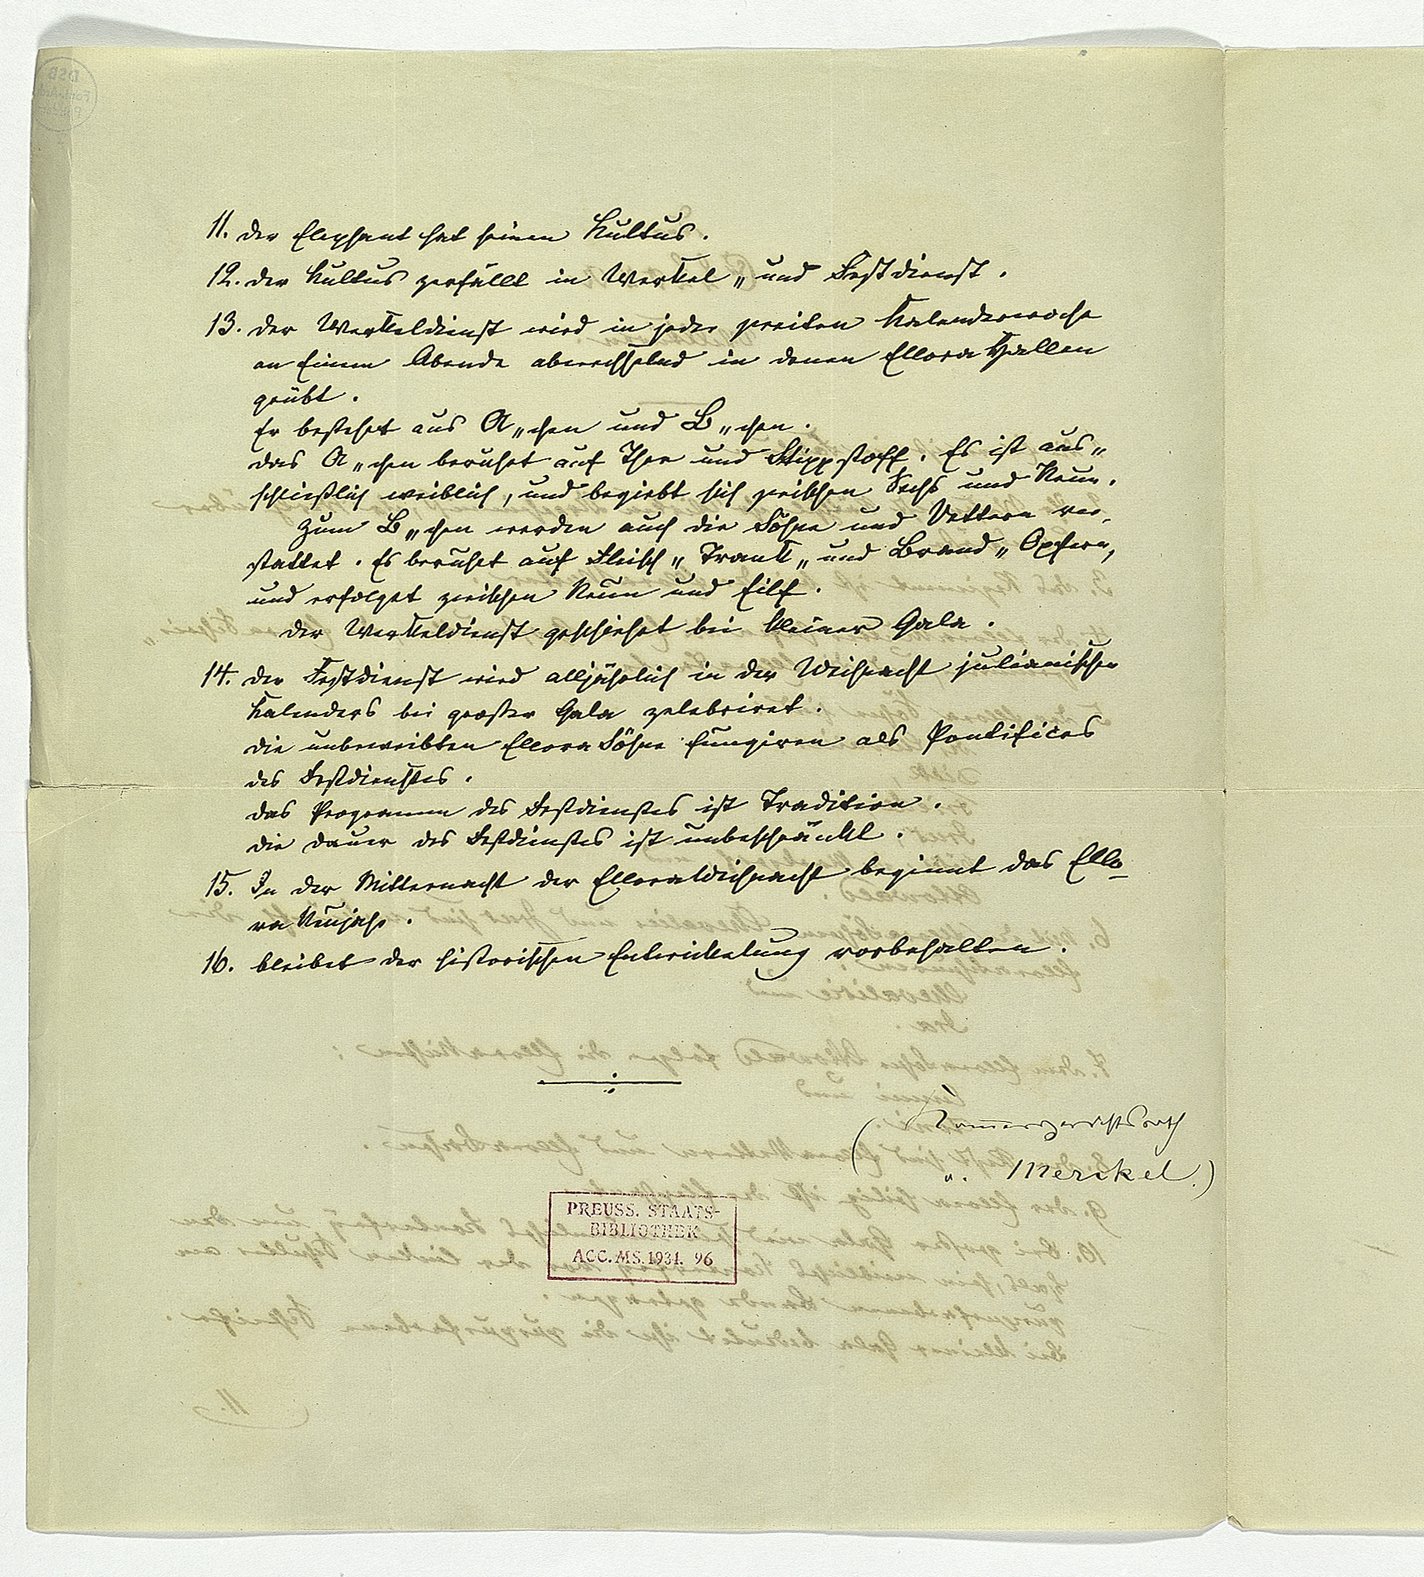 11. der Elephant hat seinen Kultus.
12. der Kultus zerfällt in Werkel„ und Festdienst.
13. der Werkeldienst wird in jeder zweiten Kalenderwoche
an Einem Abende abwechselnd in denen Ellora Hallen
geübt.
Er bestehet aus A„chen und B„chen.
das A„chen beruhet auf Thee und Stippstoff. Es ist aus„
schließlich weiblich, und begiebt sich zwischen Sechs und Neun.
Zum B„chen werden auch die Söhne und Vettern ver„
stattet. Es beruhet auf Fleisch„ Trank„ und Brand„ Opfern,
und erfolget zwischen Neun und Eilf.
der Werkeldienst geschiehet bei kleiner Gala.
14. der Festdienst wird alljährlich in der Weihnacht julianischen
Kalenders bei großer Gala zelebriret.
die unbeweibten Ellora Söhne fungiren als Pontifices
des Festdienstes.
das Programm des Festdienstes ist Tradition.
die Dauer des Festdienstes ist unbeschränkt.
15. In der Mitternacht der Ellora Weihnacht beginnt das Ello-
ra Neujahr.
16. bleibet der historischen Entwickelung vorbehalten.
(Kammergerichtsrath
v. Merckel.)
PREUSS. STAATS-
BIBLIOTHEK
ACC. MS. 1931. 96